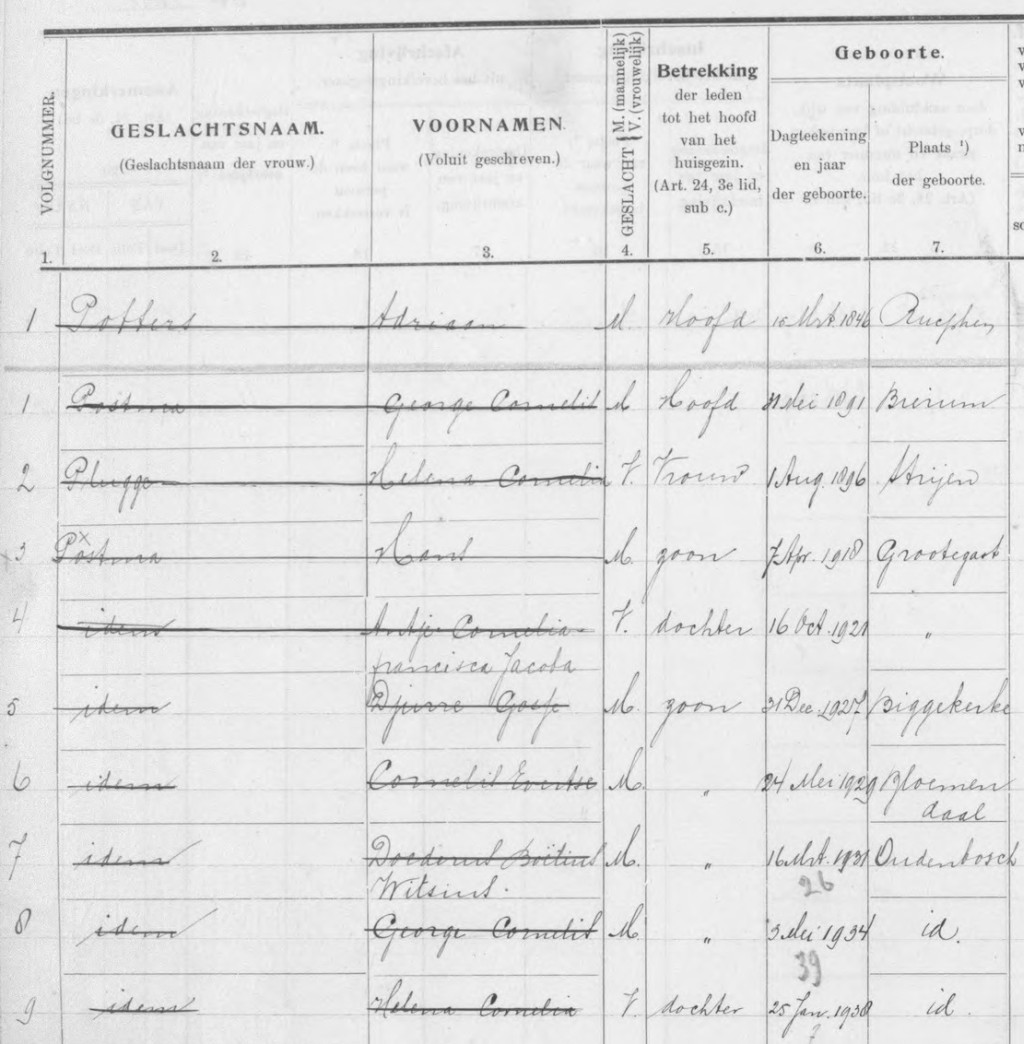 VOLGNUMMER. GESLACHTSNAAM. (Geslachtsnaam der vrouw.) VOORNAMEN. (Voluit geschreven.) GESLACHT M. (mannelijk) V. (vrouwelijk) Betrekking der leden tot het hoofd van het huisgezin. (Art. 24, 3e lid, sub c.) Geboorte. Dagteekening en jaar der geboorte. Plaats ¹) der geboorte.
1. 2. 3. 4. 5. 6. 7.
1 Potters Adriaan M. Hoofd 16 Mrt 1846 Rucphen
1 Postma George Cornelis M Hoofd 31 Mei 1891 Bierum
2 Plugge Helena Cornelia V. Vrouw 1 Aug. 1896 Strijen
3 Postma Hans M. zoon 7 Apr. 1918 Grootegast
4 idem Antje Cornelia V. dochter 16 Oct. 1921 "
francisca Jacoba
5 idem Djurre Gosse M. zoon 31 Dec. 1927 Biggekerke
6 idem Cornelis Evertse M. " 24 Mei 1929 Bloemen
daal
7 idem Doedorus Boëtius M. " 16 Mrt. 1931 Oudenbosch
Witsius. 26
8 idem George Cornelis M. " 3 Mei 1934 id.
39
9 idem Helena Cornelia V. dochter 25 Jan. 1938 id.